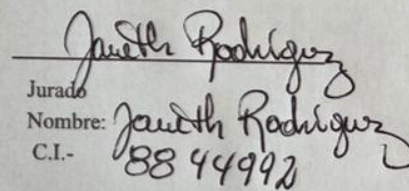 Janeth Rodríguez
Jurado
Nombre: Janeth Rodriguez
C.I.- 8844992